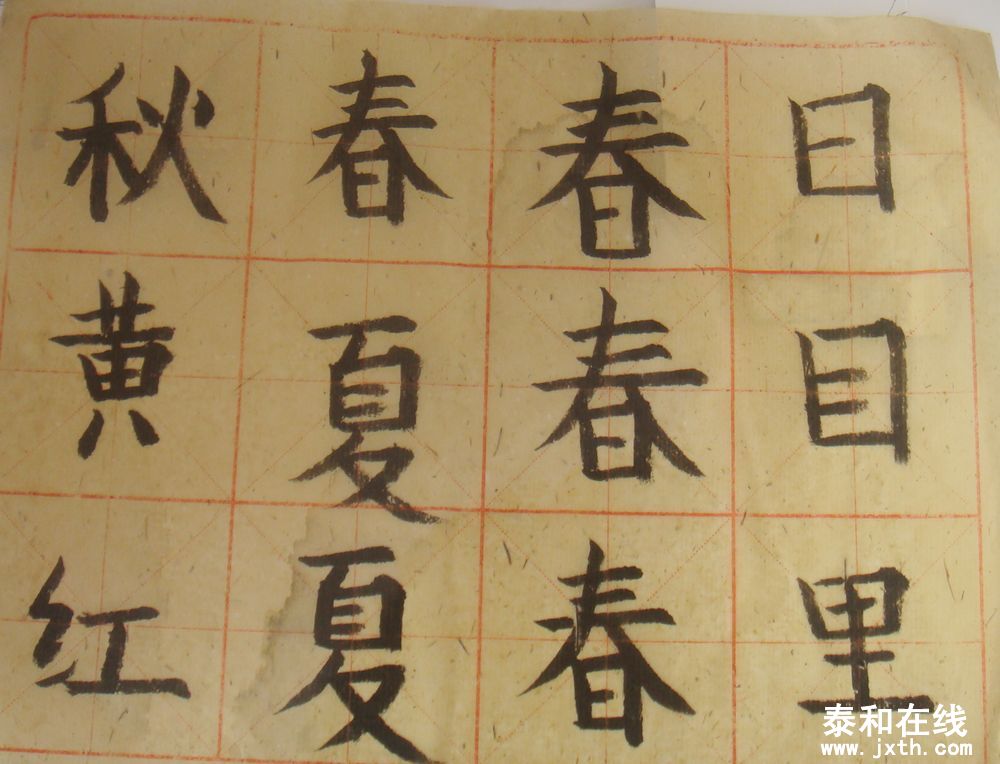 日目里
春春春
春夏夏
秋黄红
泰和在线
www.jxth.com